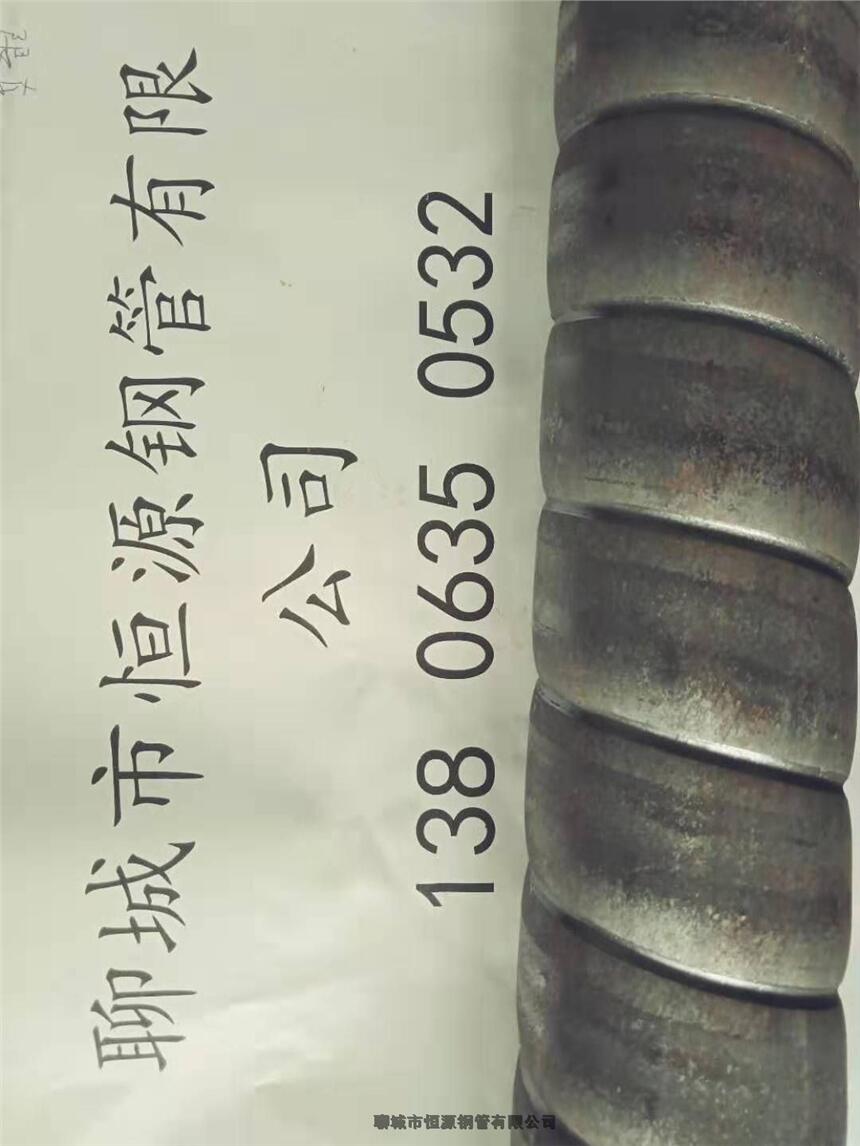 聊城市恒源钢管有限
公司
138 0635 0532
聊城市恒源钢管有限公司